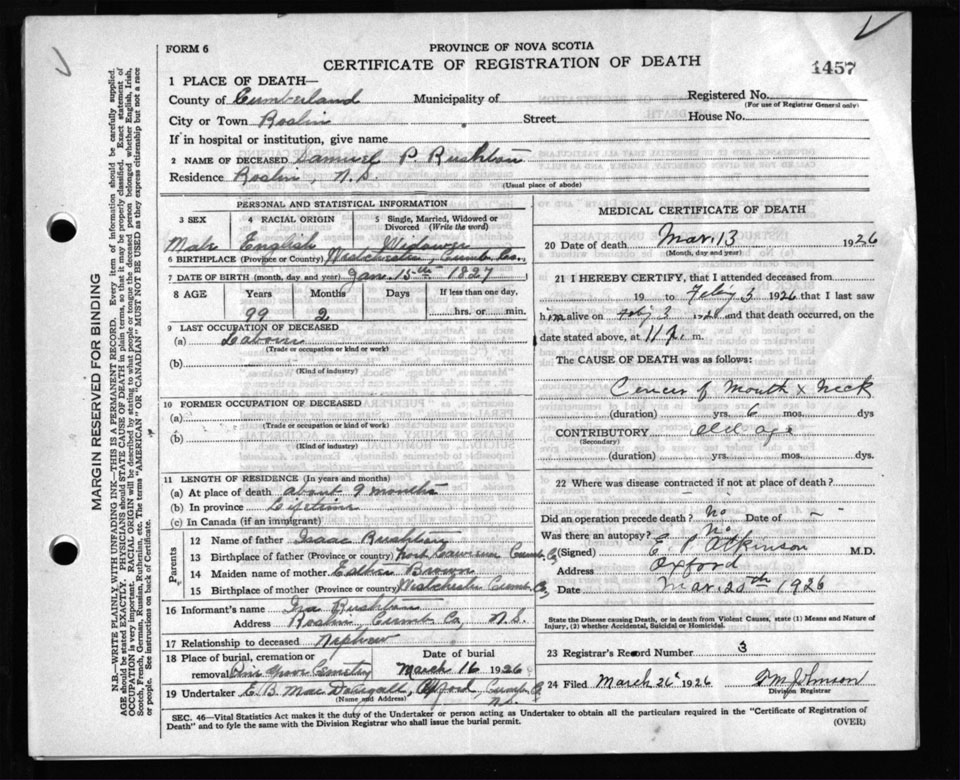 FORM 6
PROVINCE OF NOVA SCOTIA
CERTIFICATE OF REGISTRATION OF DEATH
1457
1 PLACE OF DEATH—
County of Cumberland Municipality of Registered No.
(For use of Registrar General only)
City or Town Roslin Street House No.
If in hospital or institution, give name
2 NAME OF DECEASED Samuel P Rushton
Residence Roslin, N.S.
(Usual place of abode)
PERSONAL AND STATISTICAL INFORMATION
3 SEX 4 RACIAL ORIGIN 5 Single, Married, Widowed or Divorced (Write the word)
Male English Widower
6 BIRTHPLACE (Province or Country) Westchester, Cumb. Co.
7 DATE OF BIRTH (month, day and year) Jan. 15th 1827
8 AGE Years Months Days If less than one day,
99 2 hrs. or min.
9 LAST OCCUPATION OF DECEASED
(a) Laborer
(Trade or occupation or kind or work)
(b)
(Kind of industry)
10 FORMER OCCUPATION OF DECEASED
(a)
(Trade or occupation or kind or work)
(b)
(Kind of industry)
11 LENGTH OF RESIDENCE (In years and months)
(a) At place of death about 9 months
(b) In province Lifetime
(c) In Canada (if an immigrant)
Parents
12 Name of father Isaac Rushton
13 Birthplace of father (Province or country) Cumb. Co
14 Maiden name of mother Esther Brown
15 Birthplace of mother (Province or country) Westchester Cumb. Co,
16 Informant's name Ira Rushton
Address Roslin, Cumb. Co, N.S.
17 Relationship to deceased Nephew
18 Place of burial, cremation or removal Date of burial
Pine Grove Cemetery March 16 1926
19 Undertaker E. B. Mac Dougall, Oxford, Cumb. Co N.S.
(Name and Address)
MEDICAL CERTIFICATE OF DEATH
20 Date of death Mar. 13 1926
(Month, day and year)
21 I HEREBY CERTIFY, that I attended deceased from
19 to Feby 3 1926 that I last saw
him alive on Feby 3 1926 and that death occurred, on the
date stated above, at 11 p. m.
The CAUSE OF DEATH was as follows:
Cancer of Mouth & Neck
(duration) yrs. 6 mos. dys
CONTRIBUTORY Old age
(Secondary)
(duration) yrs. mos. dys.
22 Where was disease contracted if not at place of death?
Did an operation precede death? No Date of –
Was there an autopsy? No
(Signed) E. P. Atkinson M.D.
Address Oxford
Date Mar. 20th 1926
State the Disease causing Death, or in death from Violent Causes, state (1) Means and Nature of Injury, (2) whether Accidental, Suicidal or Homicidal.
23 Registrar's Record Number 3
24 Filed March 26 1926 Johnson
Division Registrar
SEC. 46—Vital Statistics Act makes it the duty of the Undertaker or person acting as Undertaker to obtain all the particulars required in the "Certificate of Registration of
Death" and to fyle the same with the Division Registrar who shall issue the burial permit. (OVER)
MARGIN RESERVED FOR BINDING
N.B.—WRITE PLAINLY, WITH UNFADING INK—THIS IS A PERMANENT RECORD. Every item of information should be carefully supplied.
AGE should be stated EXACTLY. PHYSICIANS should STATE CAUSE OF DEATH in plain terms, so that it may be properly classified. Exact statement of
OCCUPATION is very important. RACIAL ORIGIN will be described by stating to what people or tongue the deceased person belonged whether English, Irish,
Scotch, French, German, Russian, Ruthenian, etc. The terms "AMERICAN" OR "CANADIAN" MUST NOT BE USED as they express citizenship but not a race
or people. See instructions on back of Certificate.